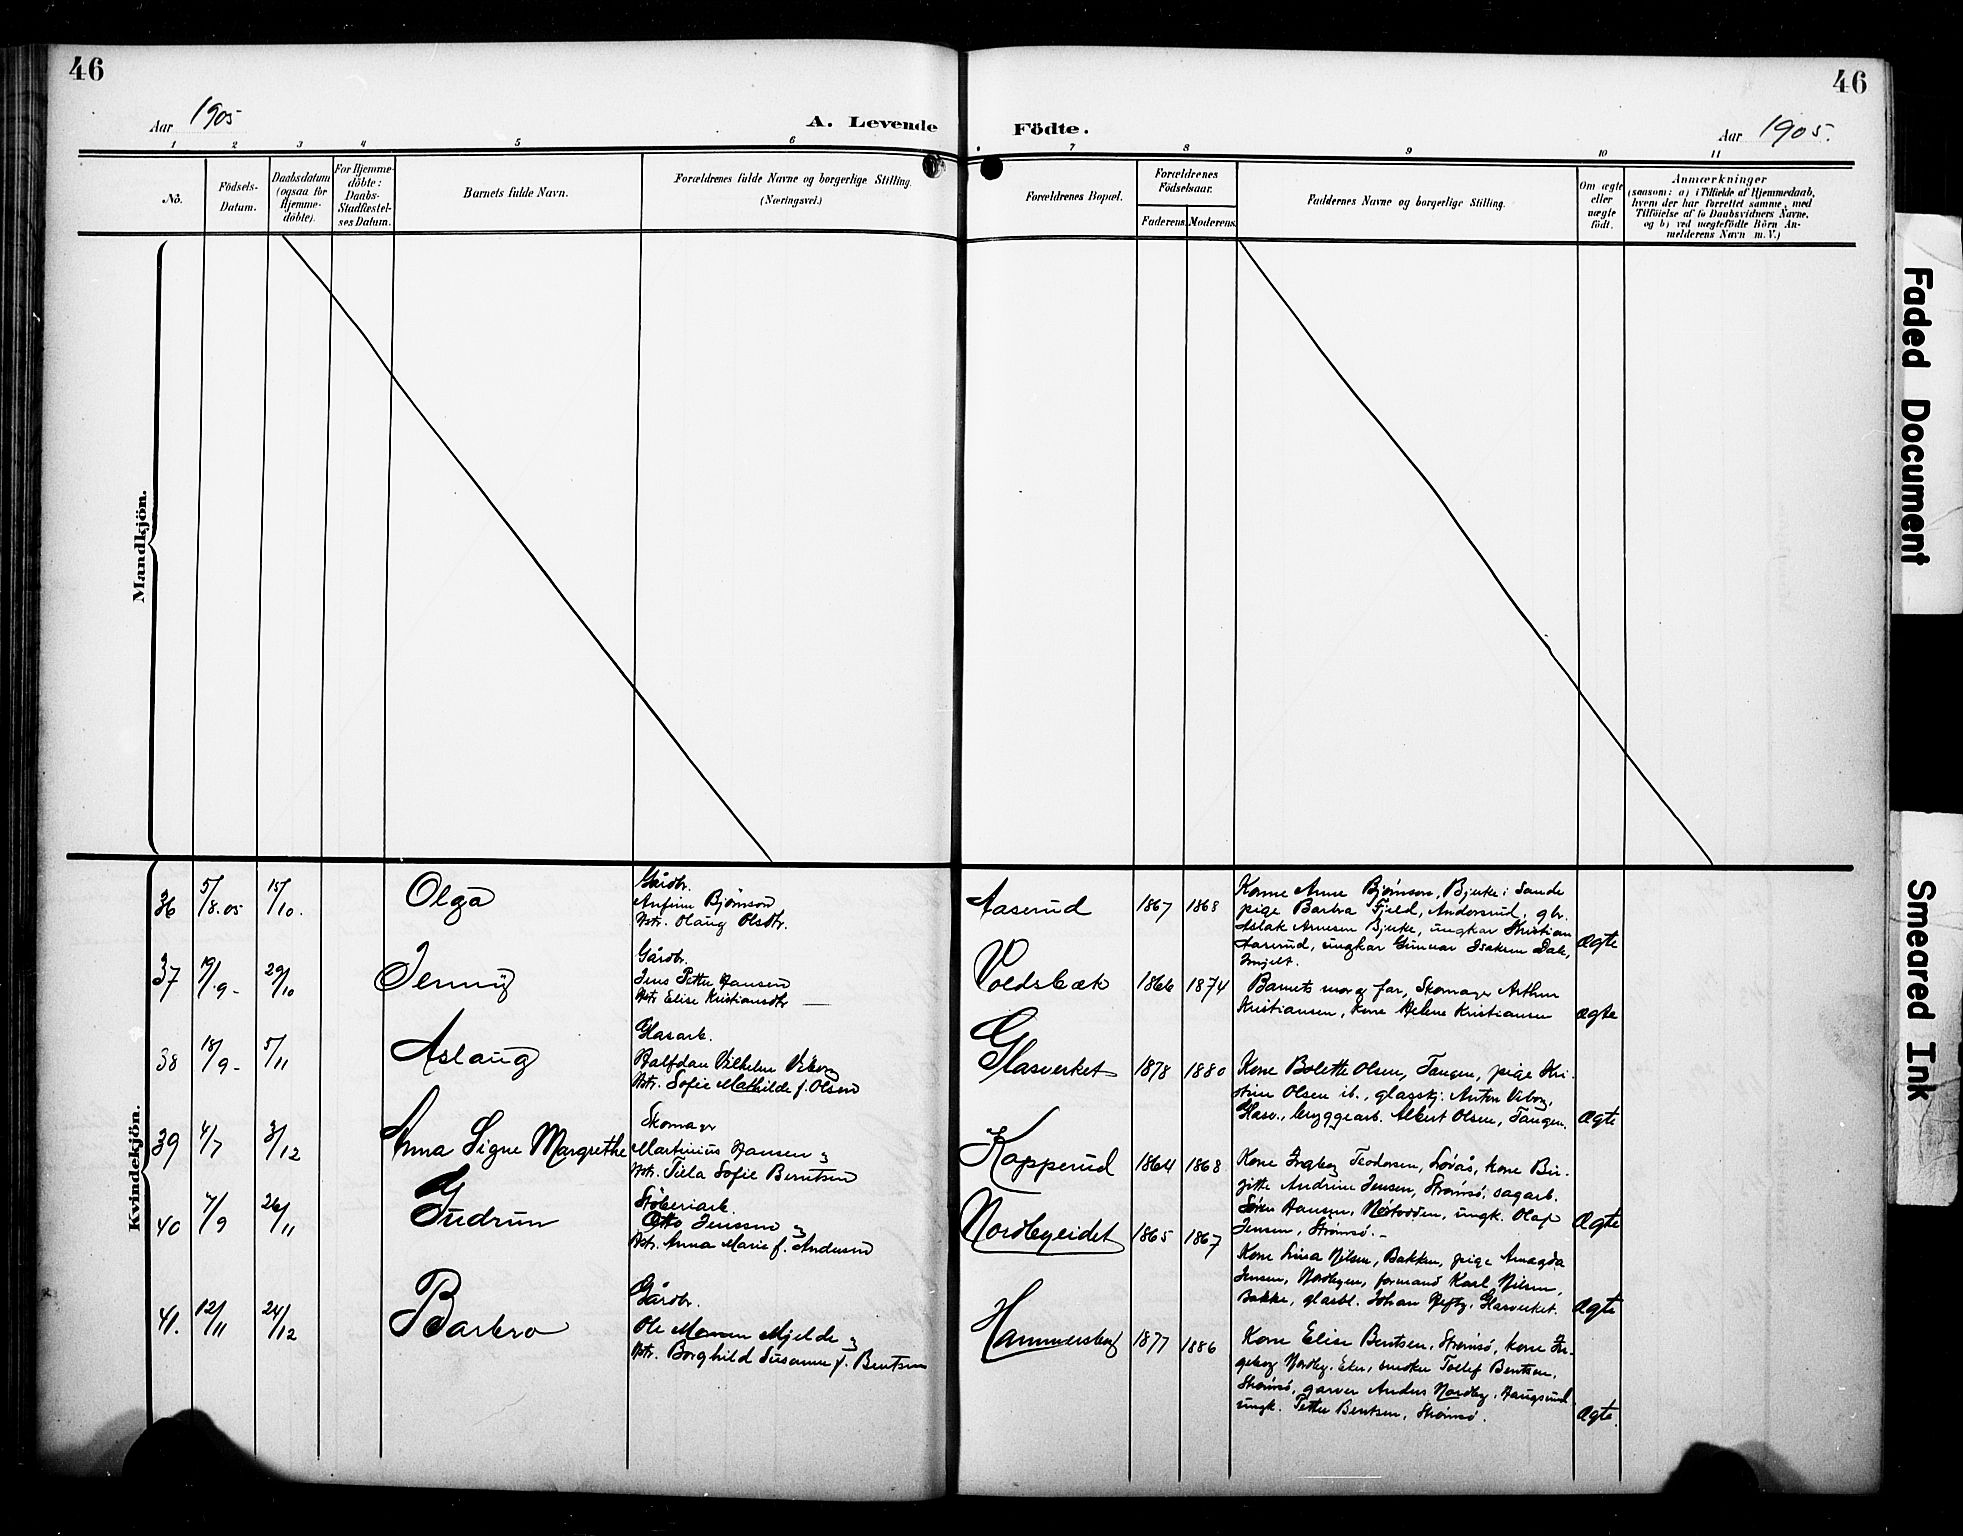 46
46
Aar 1905
A. Levende
Födte.
Aar 1905.
1 2 3 4 5 6
7 8 9 10 11
No.
Födsels-
Datum.
Daabsdatum
(ogsaa for
Hjemme-
döbte).
For Hjemme-
döbte:
Daabs-
Stadfæstel-
ses Datum.
Barnets fulde Navn.
Forældrenes fulde Navne og borgerlige Stilling.
(Næringsvei.)
Forældrenes Bopæl.
Forældrenes
Födselsaar.
Faderens.
Moderens.
Faddernes Navne og borgerlige Stilling.
Om ægte
eller
uægte
födt.
Anmærkninger
(saasom: a) i Tilfælde af Hjemmedaab,
hvem der har forrettet samme, med
Tilföielse af to Daabsvidners Navne,
og b) ved uægtefödte Börn An-
melderens Navn m. V.)
Mandkjön.
Kvindekjön.
36
5/8.05
15/10.
Olga
Gårdbr.
Bjørnson
Hstr. Olaug Olsdtr.
Aaserud
1867
1868
Kone Anne Bjørnson, Bjerke i Sande
pige Barbra Fjeld, Andorsrud, gbr.
Aslak Arnesen Bjerke, ungkar Kristian
Aaserud, ungkar Gunnar Isaksen Dale,
Ægte
37
19/9-
29/10
Jenny
Gårdbr.
Jens Petter Hansen
Hstr Elise Kristiansdtr
Voldsbæk
1866
1874
Barnets mor og far, Skomager Arthur
Kristiansen, Kone Helene Kristiansen
Ægte
38
18/9-
5/11
Aslaug
Glasarb.
Halfdan Vilhelm Viborg
Hstr. Sofie Mathilde f. Olsen
Glasverket
1878
1880
Kone Bolette Olsen, Tangen, pige Kri-
stine Olsen ib., glasskj. Anton Viborg,
Glasv., bryggearb. Albert Olsen, Tangen.
Ægte
39
4/7
3/12
Anna Signe Margrethe
Skomager
Martinius Hansen og
Hstr. Tilla Sofie Berntsen
Kopperud
1864
1868
Kone Ingborg Teodorsen, Løvås, kone Bir-
gitte Andrine Jensen, Strømsø, sagarb.
Søren Hansen, ungk. Olaf
Jensen, Strømsø.-
Ægte
40
7/9
26/11
Gudrun
Støberiarb.
Otto Jenssen og
Hstr. Anna Marie f. Andersen
Nordbyeidet
1865
1867
Kone Lina Nilsen, Bakken, pige Amagda
Jensen, Nordbyen, formand Karl Nilsen,
Bakke, glasbl. Johan Glasverket.
Ægte
41.
12/11
24/12
Barbro
Gårdbr.
Ole Monsen Mjelde og
Hstr. Borghild Susanne f. Bentsen
Hammersborg
1877
1886
Kone Elise Bentsen, Strømsø, kone In-
geborg Nordby, Eker, Tollef Bentsen,
Strømsø, garver Anders Nordby, Haugsund
ungk. Petter Bentsen, Strømsø.
Ægte.
Faded Document
Smeared Ink